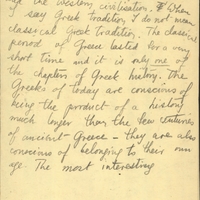 of the western civilisation. When
I say Greek Tradition I do not mean
classical Greek Tradition. The classical
period of Greece lasted for a very
short time and it is only one of
the chapters of Greek history. The
Greeks of today are conscious of
being the product of a history
much longer than the few centuries
of ancient Greece – they are also
conscious of belonging to their own
age. The most interesting